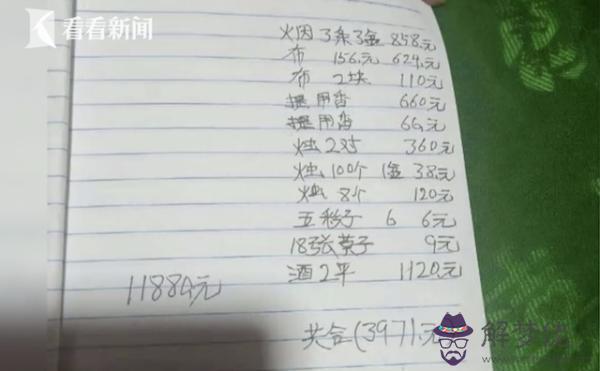 看看新闻
烟3条3盒 858.元
布 156.元 624.元
布 2块 110元
提用香 660元
提用香 66.元
烛2对 360元
烛100个 1盒 38.元
烛8个 120元
五彩子 6 6元
18张黄子 9元
酒2平 1120元
11884元
共合(3971.元
解梦佬